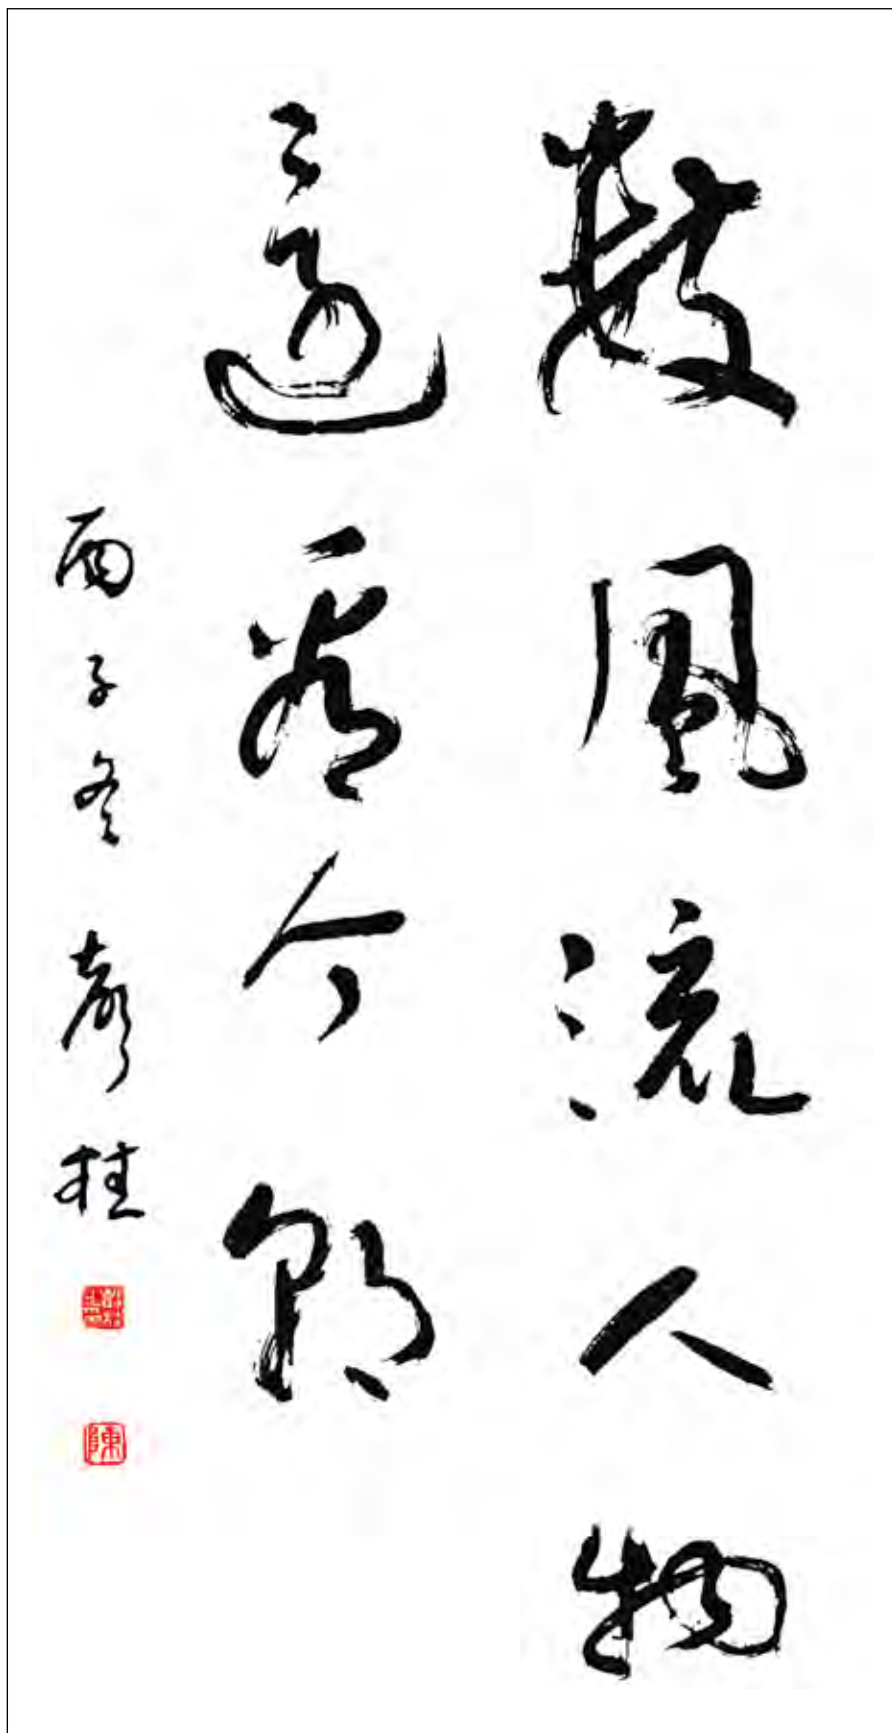 數風流人物
還看今朝
丙子冬 声桂
陳